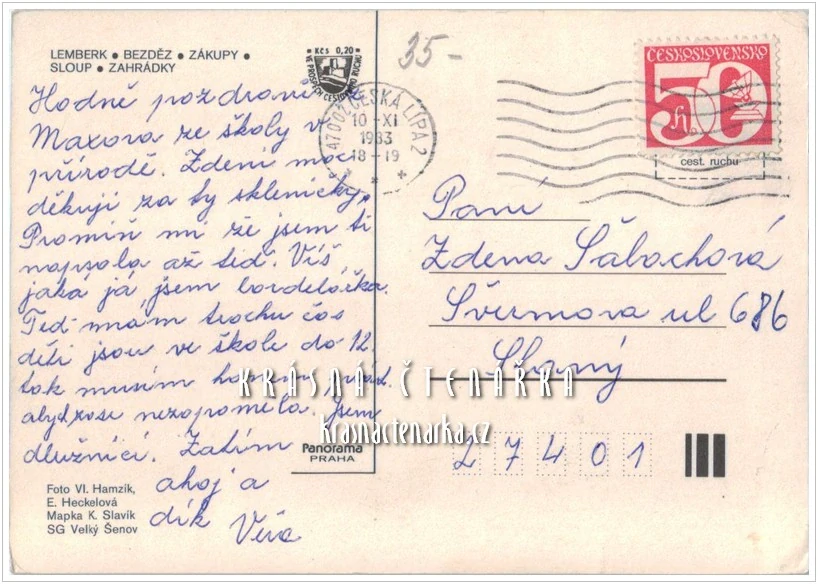 LEMBERK ● BEZDĚZ ● ZÁKUPY ●
SLOUP ● ZAHRÁDKY
Kčs 0,20
VE PROSPĚCH CESTOVNÍHO RUCHU
35-
470 02 ČESKÁ LÍPA 2
10 -XI
1983
18 - 19
ČESKOSLOVENSKO
50
h
cest. ruchu
Hodně pozdravů z
Maxova ze školy v
přírodě. Zdeni moc
děkuji za ty skleničky,
Promiň mi že jsem ti
napsala až teď. Víš
jaká já jsem bordelářka.
Teď mám trochu čas
děti jsou ve škole do 12.
tak musím honem psát.
abych zase nezapomela. Jsem
dlužnicí. Zatím
ahoj a
dík Věra
Paní
Zdena Šalachová
Švermova ul 686
Slaný
27401
KRÁSNÁ ČTENÁŘKA
krasnactenarka.cz
Panorama
PRAHA
Foto Vl. Hamzík,
E. Heckelová
Mapka K. Slavík
SG Velký Šenov